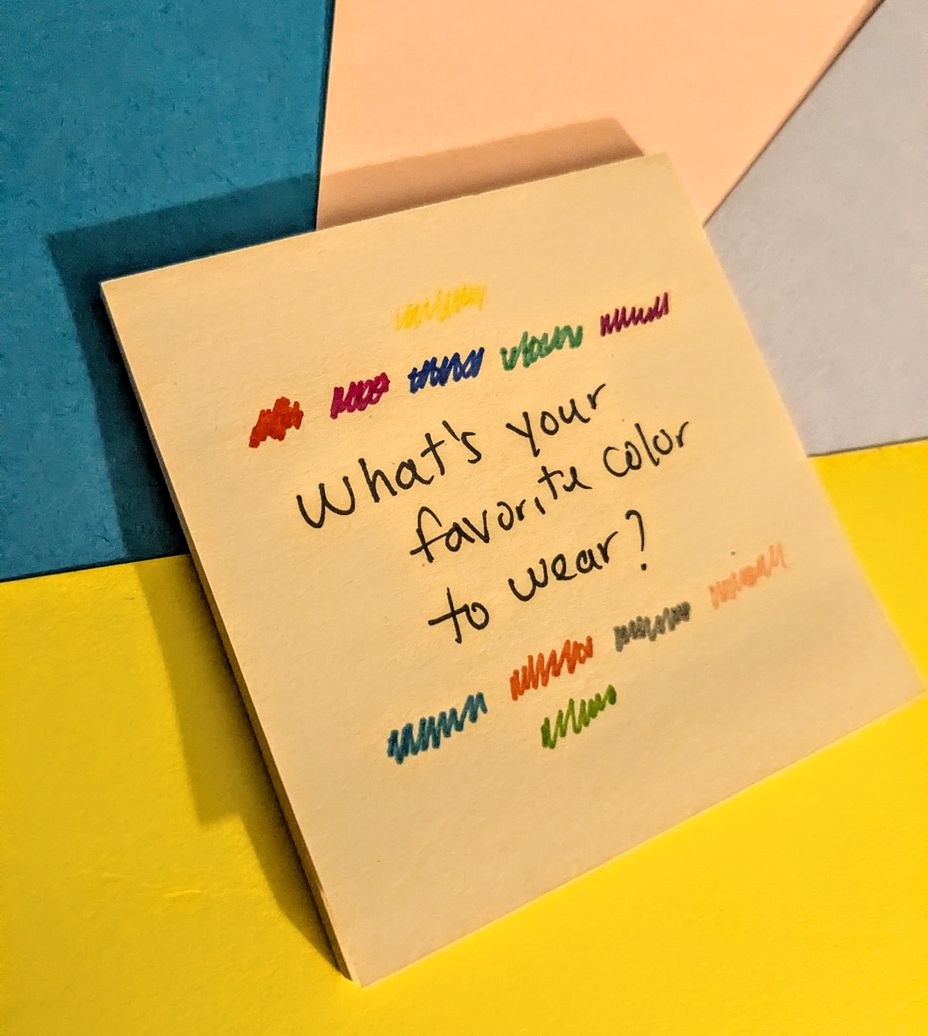 What's your
favorite color
to wear?